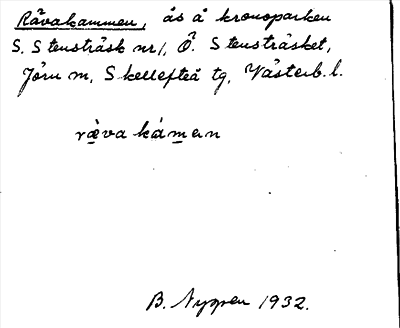 Rävakammen, ås å kronoparken
S. Stensträsk nr 1, Ö. Stensträsket,
Jörn sn, Skellefteå tg, Västerb. l.
rǟva kámen
B. Nygren 1932.